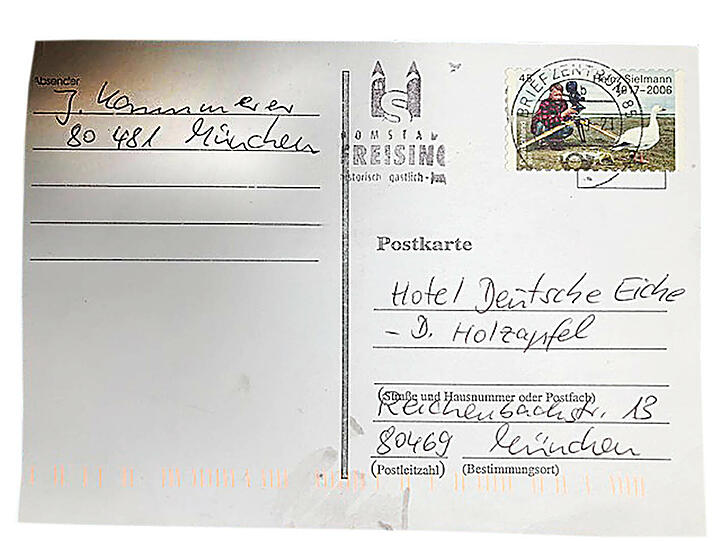 Absender
J. Kammerer
80 481 München
DOMSTADT
FREISING
historisch gastlich - jung
45 Heinz Sielmann
1917-2006
BRIEFZENTRUM 85
Postkarte
Hotel Deutsche Eiche
- D. Holzapfel
(Straße und Hausnummer oder Postfach)
Reichenbachstr. 13
80469 München
(Postleitzahl) (Bestimmungsort)